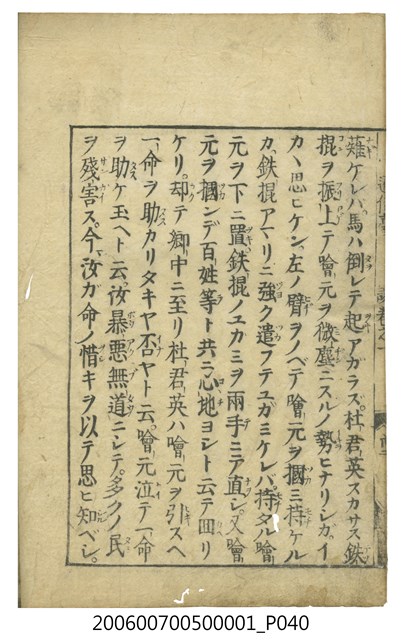 薙ケレバ馬ハ倒レテ起アガラズ。杜君英スカサス鉄
棍ヲ振上テ噲元ヲ微塵ニスルノ勢ヒナリシガ。イ
カヽ思ヒケン。左ノ臂ヲノベテ噲元ヲ摑ミ持ケル
カ。鉄棍アマリニ強ク遣フテユガミケレバ。持タル噲
元ヲ下ニ置。鉄棍ノユカミヲ両手ニテ直シ。又噲
元ヲ摑ンデ百姓等ト共ニ心地ヨシト云テ回リ
ケリ。却テ郷中ニ至リ杜君英ハ噲元ヲ引スヘ
一命ヲ助カリタキヤ否ヤト云。噲元泣テ一命
ヲ助ケ玉ヘト云。汝暴悪無道ニシテ。多クノ民
ヲ残害ス。今汝ガ命ノ惜キヲ以テ思ヒ知ベシ。
200600700500001_P040